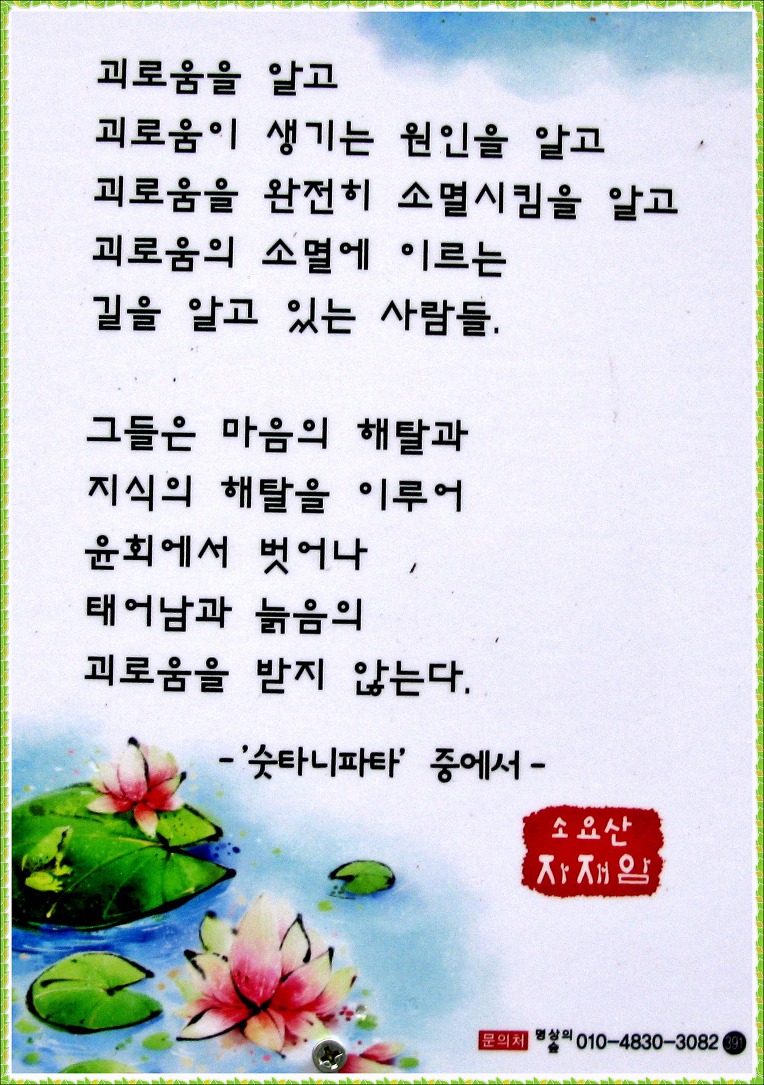 괴로움을 알고
괴로움이 생기는 원인을 알고
괴로움을 완전히 소멸시킴을 알고
괴로움의 소멸에 이르는
길을 알고 있는 사람들.
그들은 마음의 해탈과
지식의 해탈을 이루어
윤회에서 벗어나
태어남과 늙음의
괴로움을 받지 않는다.
-'숫타니파타' 중에서-
소요산
자재암
문의처 명상의숲 010-4830-3082 391